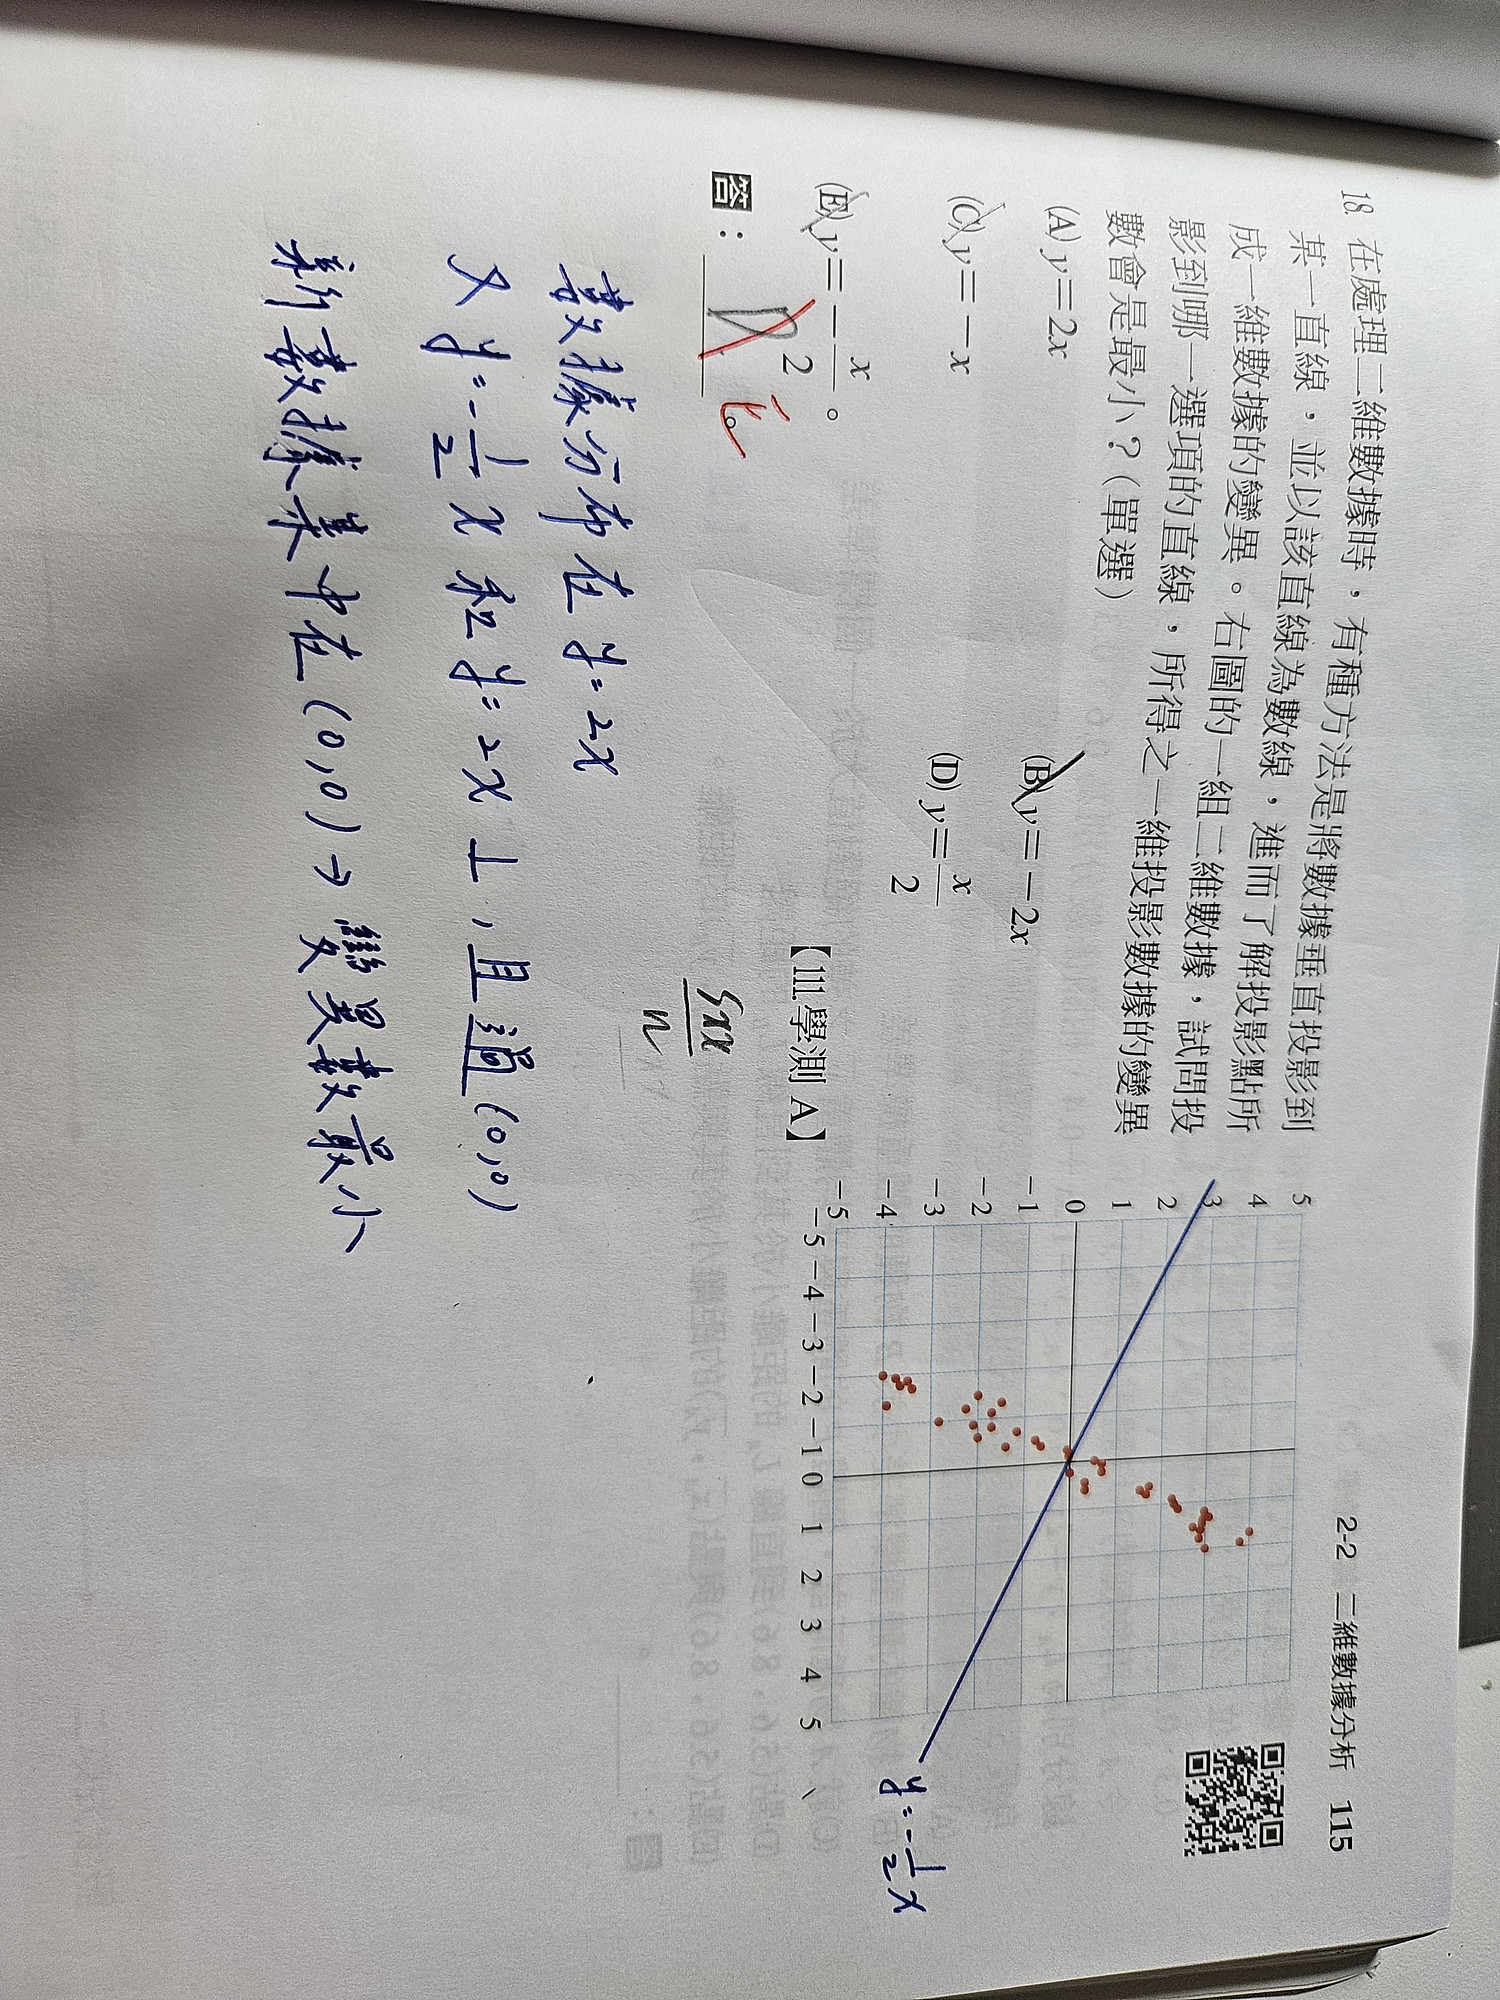 2-2 二維數據分析 115
18. 在處理二維數據時，有種方法是將數據垂直投影到
某一直線，並以該直線為數線，進而了解投影點所
成一維數據的變異。右圖的一組二維數據，試問投
影到哪一選項的直線，所得之一維投影數據的變異
數會是最小？（單選）
(A) y=2x
(B) y=-2x
(C) y=-x
(D) y=x/2
(E) y=-x/2。
【111.學測 A】
答：D。
E
Sxx/n
5
4
3
2
1
0
-1
-2
-3
-4
-5
-5 -4 -3 -2 -1 0 1 2 3 4 5
y=-1/2x
數據分布在 y=2x
又 y=-1/2x 和 y=2x ⊥，且過(0,0)
新數據集中在(0,0)→變異數最小